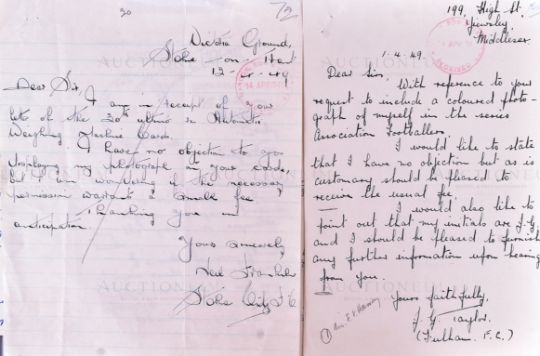 72
Victoria Ground,
Stoke on Trent
12-4-49
Dear Sir,
I am in receipt of your
of the 30th ultimo re Automatic
Weighing Machine Cards.
I have no objection to you
displaying my photograph in your cards,
but I am wondering if the necessary
permission warrants a small fee
Thanking you in
anticipation.
Yours sincerely
Neil Franklin
Stoke City F.C.
199, High St,
Yiewsley
Middlesex
1-4-49.
Dear Sir,
With reference to your
request to include a coloured photo-
graph of myself in the series
Association Footballers.
I would like to state
that I have no objection but as is
customary should be pleased to
receive the usual fee.
I would also like to
point out that my initials are J.G.
and I should be pleased to furnish
any further information upon hearing
from you.
Yours faithfully,
J. G. Taylor.
(Fulham. F.C.)